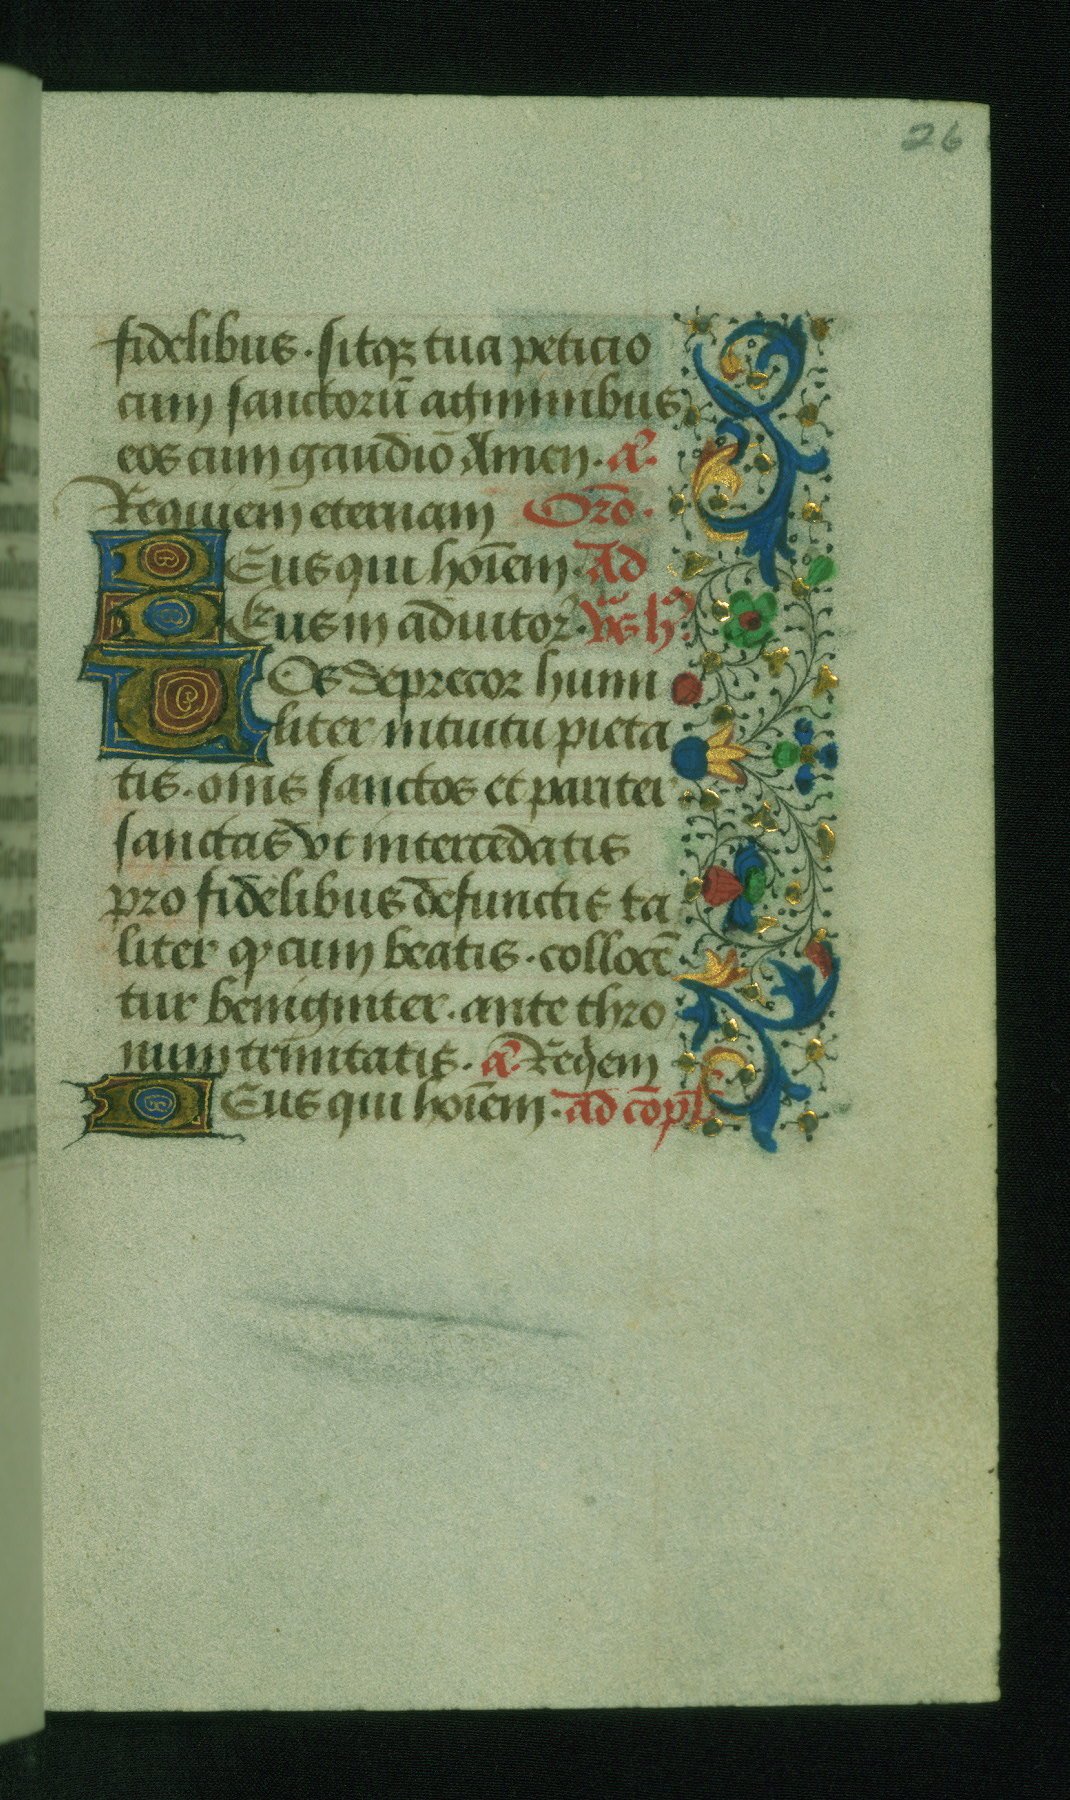 26
fidelibus · sitqꝫ tua peticio
cum sanctorū agminibus
eos cum gaudiō Amen · a͞.
Requiem eternam Orō ·
Deus qui hoīem · Ad
Deus in adiutor͛ · v̄s
Uos deprecor humi
liter intuitu pieta
tis · om̄s sanctos et pariter
sanctas vt intercedatis
pro fidelibus defunctis ta
liter ꝙ cum beatis · collocē
tur benigniter · ante thro
num trinitatis · a͞. Reqem
Deus qui hoīem · ad cōpl̄